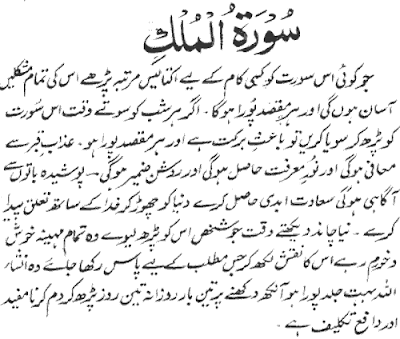 سُوْرَۃُ الْمُلْکِ
جو کوئی اس سورت کو کسی کام کے لیے اکتالیس مرتبہ پڑھے اس کی تمام مشکلیں
آسان ہوں گی اور ہر مقصد پورا ہوگا۔ اگر ہر شب کو سوتے وقت اس سورت
کو پڑھ کر سویا کریں تو باعثِ برکت ہے اور ہر مقصد پورا ہو۔ عذاب قبر سے
معافی ہوگی اور نورِ معرفت حاصل ہوگی اور روشن ضمیر ہوگی۔ پوشیدہ باتوں سے
آگاہی ہوگی سعادت ابدی حاصل کرے دنیا کو چھوڑ کر خدا کے ساتھ تعلق پیدا
کرے۔ نیا چاند دیکھتے وقت جو شخص اس کو پڑھ لیوے وہ تمام مہینہ خوش
و خرم رہے اس کا نقش لکھ کر جس مطلب کے لیے پاس رکھا جائے وہ انشاء
اللہ بہت جلد پورا ہو آنکھ دکھنے پر تین بار روزانہ تین روز پڑھ کر دم کرنا مفید
اور دافع تکلیف ہے۔